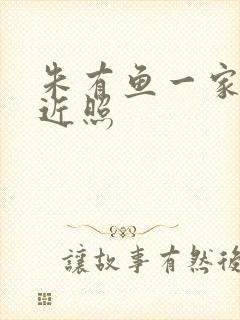 朱有鱼一家
近照
讓故事有然後